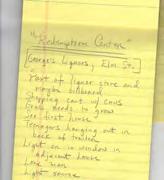 "Redemption Center"
[George's Liquors, Elm St.]
Part of liquor store and
maybe billboard
Shopping cart w/ cans
Grass needs to grow
See first house
Teenagers hanging out in
back of trailer
Light on in window in
adjacent house
Lone man
Light source